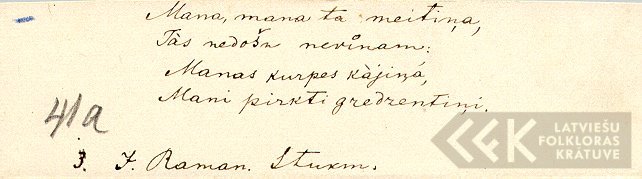 Mana, mana ta meitiņa,
Tàs nedošu nevỉnam:
Manas kurpes kàjiņá,
Mani pirkti gredzentiņi.
41a
3. J. Raman. Stukm.
LATVIEŠU
FOLKLORAS
KRĀTUVE